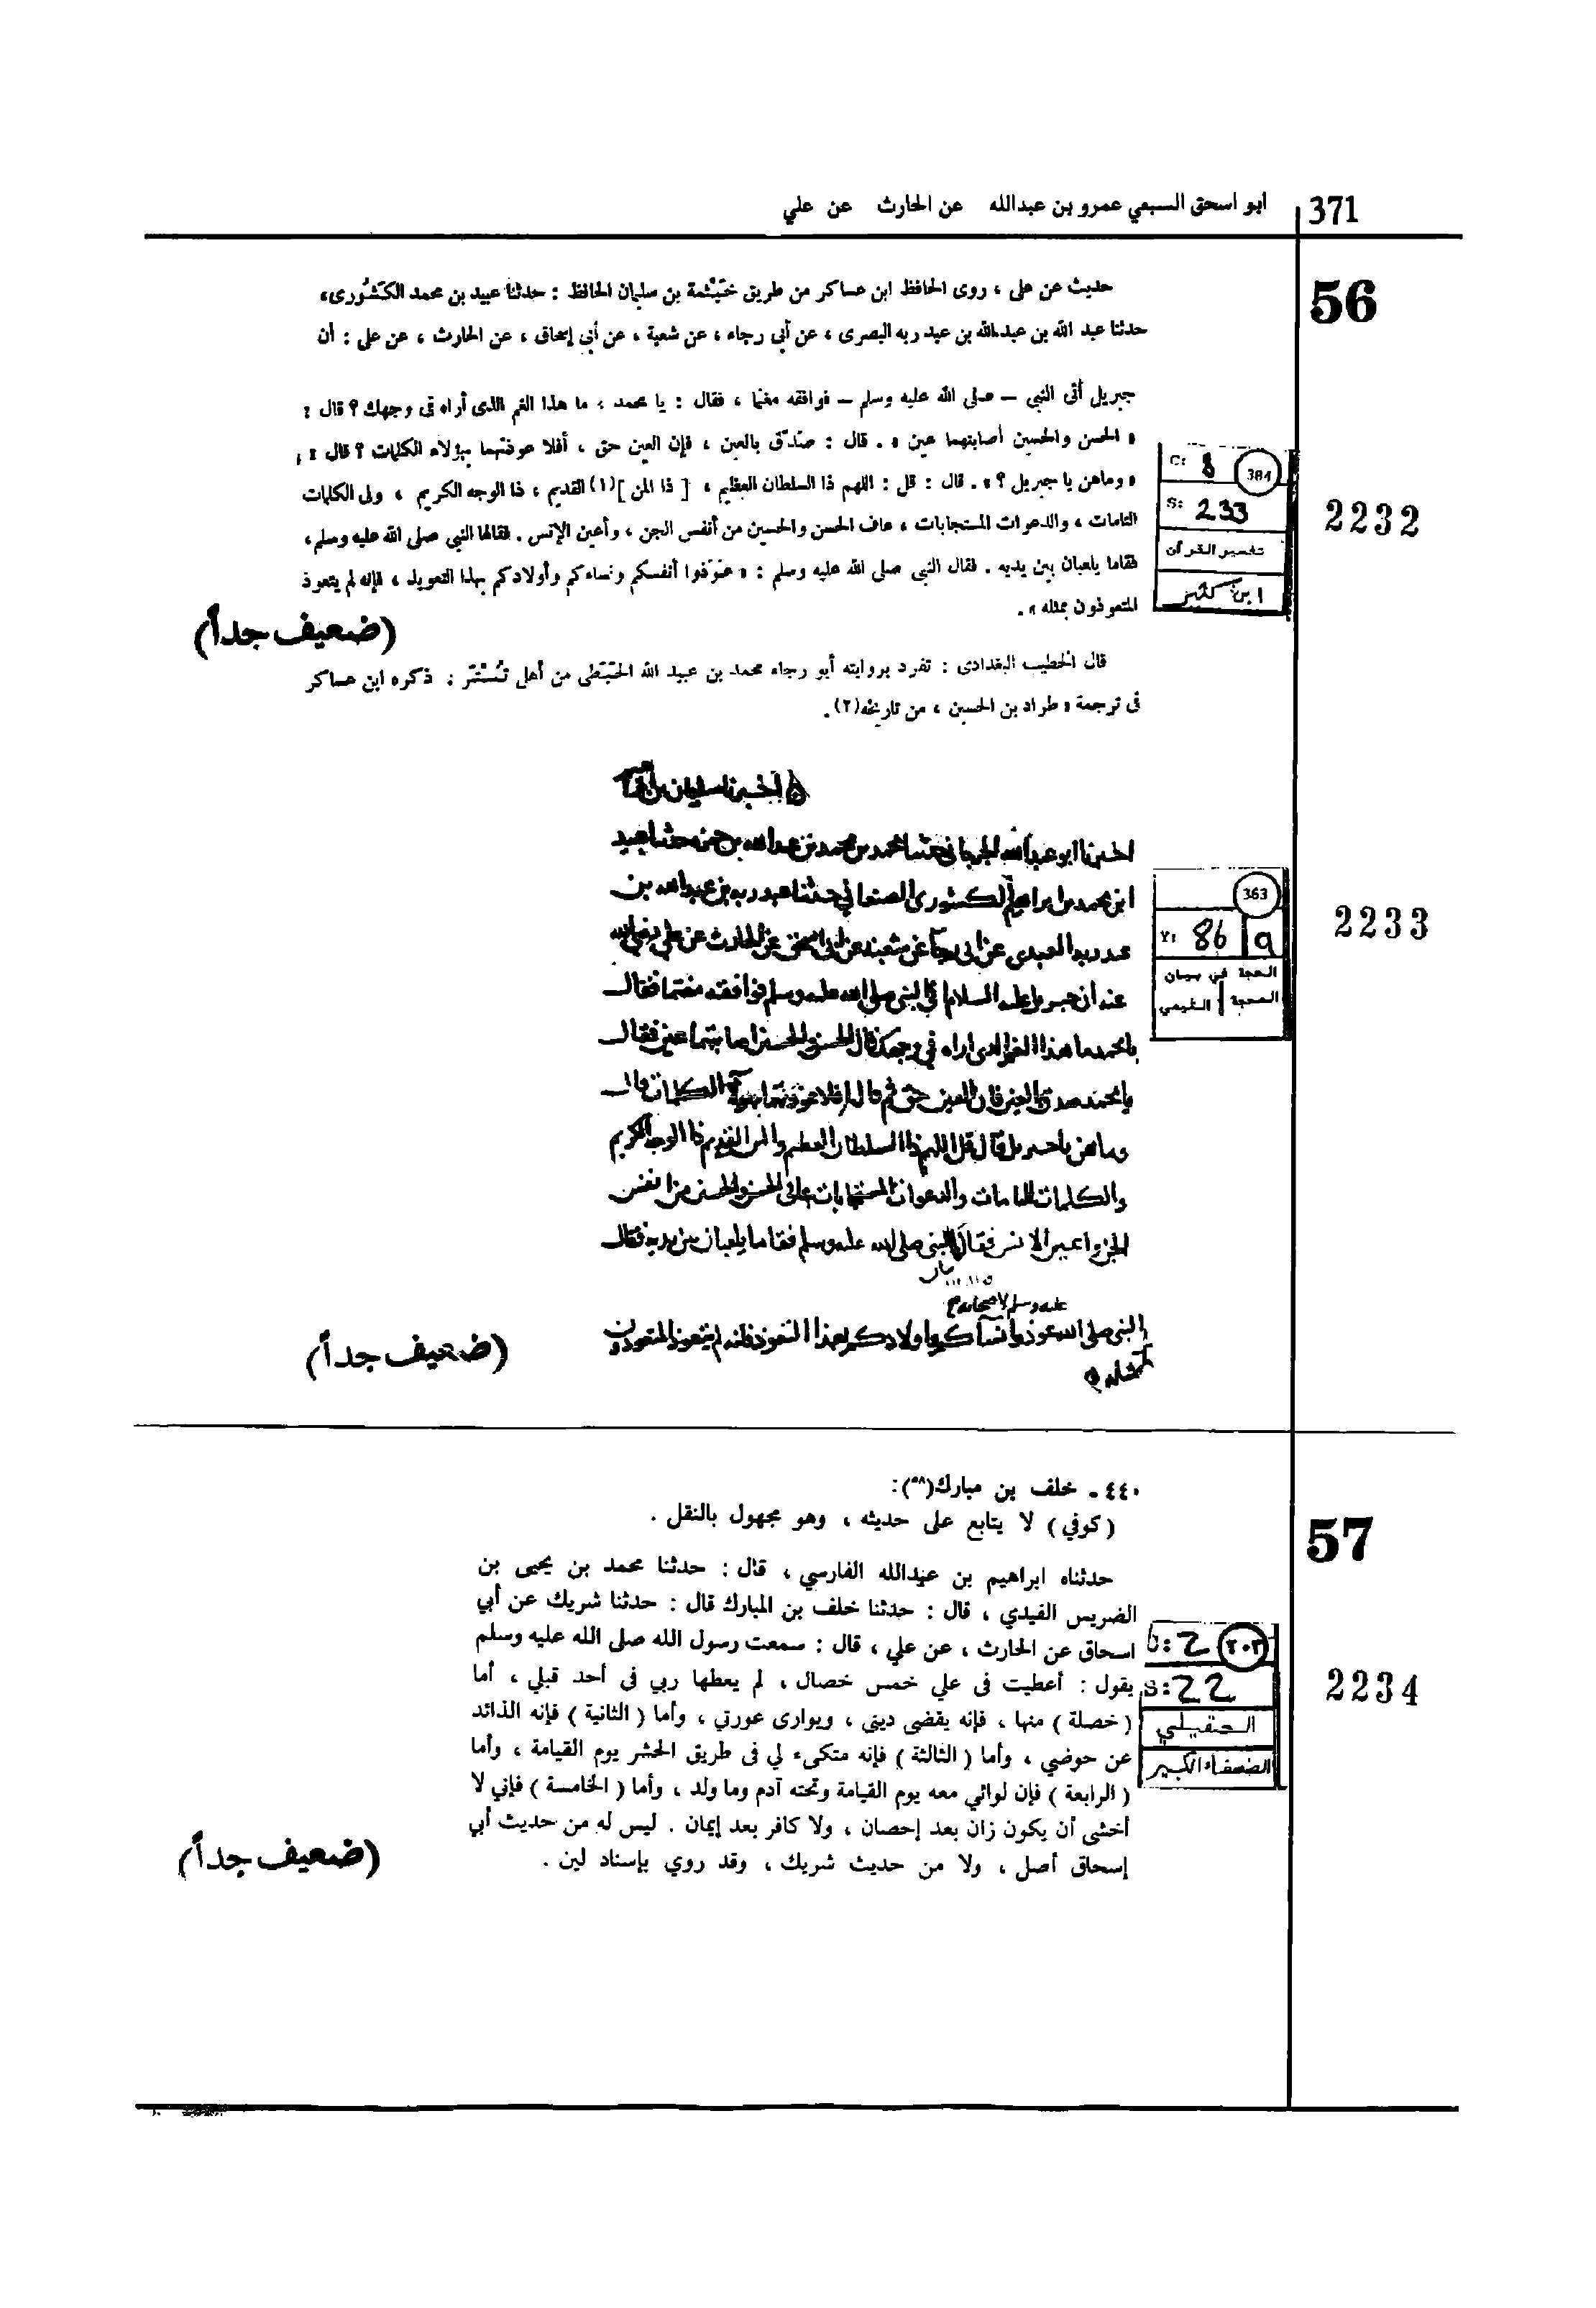 371
ابو اسحق السبعي عمرو بن عبدالله عن الحارث عن علي
56
حديث عن على ، روى الحافظ ابن عساكر من طريق خَيْثَمة بن سليمان الحافظ : حدثنا عبيد بن محمد الكَشْوُرى،
حدثنا عبد الله بن عبد الله بن عبد ربه البصرى ، عن أبى رجاء ، عن شعبة ، عن أبى إسحاق ، عن الحارث ، عن على : أن
جبريل أتى النبى – صلى الله عليه وسلم – فوافقه مغتما ، فقال : يا محمد ، ما هذا الغم الذى أراه فى وجهك ؟ قال :
« الحسن والحسين أصابتهما عين » . قال : صَدّق بالعين ، فإن العين حق ، أفلا عوذتهما بهؤلاء الكلمات ؟ قال :
« وماهن يا جبريل ؟ » . قال : قل : اللهم ذا السلطان العظيم ، [ ذا المن ](١) القديم ، ذا الوجه الكريم ، ولى الكلمات
التامات ، والدعوات المستجابات ، عاف الحسن والحسين من أنفس الجن ، وأعين الإنس . فقالها النبى صلى الله عليه وسلم،
فقاما يلعبان بين يديه . فقال النبى صلى الله عليه وسلم : « عَوّذوا أنفسكم ونساءكم وأولادكم بهذا التعويذ ، فإنه لم يتعوذ
المتعوذون بمثله » .
(ضعيف جداً)
قال الخطيب البغدادى : تفرد بروايته أبو رجاء محمد بن عبيد الله الحَبَطى من أهل تُسْتَر : ذكره ابن عساكر
فى ترجمة « طراد بن الحسين ، من تاريخه(٢) .
C: 8 384
S: 233
تفسير القرآن
ابن كثير
2232
اخبرنا سليمان بن
اخبرنا ابو عبدالله الجرجاني حدثنا محمد بن محمد بن عبدالله بن حمزه حدثنا عبيد
ابن محمد بن ابراهيم الكشورى الصنعاني حدثنا عبد ربه بن عبدالله بن
عبد ربه العبدى عن ابى رجا عن شعبه عن ابى اسحق عن الحارث عن على رضي الله
عنه ان جبريل عليه السلام اتى النبى صلى الله عليه وسلم فوافقه مغتما فقال
يا محمد ما هذا الغم الذى اراه في وجهك قال الحسن والحسين اصابتهما عين فقال
يا محمد صدق بالعين فان العين حق ثم قال افلا عوذتهما بهولا الكلمات قال
وما هن يا جبريل قال قل اللهم ذا السلطان العظيم والمن القديم ذا الوجه الكريم
والكلمات التامات والدعوات المستجابات عافى الحسن والحسين من انفس
الجن واعين الانس فقال النبى صلى الله عليه وسلم فقاما يلعبان بين يديه فقال
عليه وسلم لاصحابه
النبى صلى الله عوذوا نساكم واولادكم بهذا التعوذ فانه لم يتعوذ المتعوذون
بمثله
(ضعيف جداً)
363
Y: 86 a
الحجة في بيان
المحجة التيمي
2233
57
٤٤٠ - خلف بن مبارك(٥٨):
( كوفي ) لا يتابع على حديثه ، وهو مجهول بالنقل .
حدثناه ابراهيم بن عبدالله الفارسي ، قال : حدثنا محمد بن يحيى بن
الضريس الفيدي ، قال : حدثنا خلف بن المبارك قال : حدثنا شريك عن أبي
اسحاق عن الحارث ، عن علي ، قال : سمعت رسول الله صلى الله عليه وسلم
يقول : أعطيت فى علي خمس خصال ، لم يعطها ربي فى أحد قبلي ، أما
( خصلة ) منها ، فإنه يقضى ديني ، ويوارى عورتي ، وأما ( الثانية ) فإنه الذائد
عن حوضي ، وأما ( الثالثة ) فإنه متكىء لي فى طريق الحشر يوم القيامة ، وأما
( الرابعة ) فإن لوائي معه يوم القيامة وتحته آدم وما ولد ، وأما ( الخامسة ) فإني لا
أخشى أن يكون زان بعد إحصان ، ولا كافر بعد إيمان . ليس له من حديث أبي
إسحاق أصل ، ولا من حديث شريك ، وقد روي بإسناد لين .
(ضعيف جداً)
2 ٢٠٣
S: 22
العقيلي
الضعفاء الكبير
2234